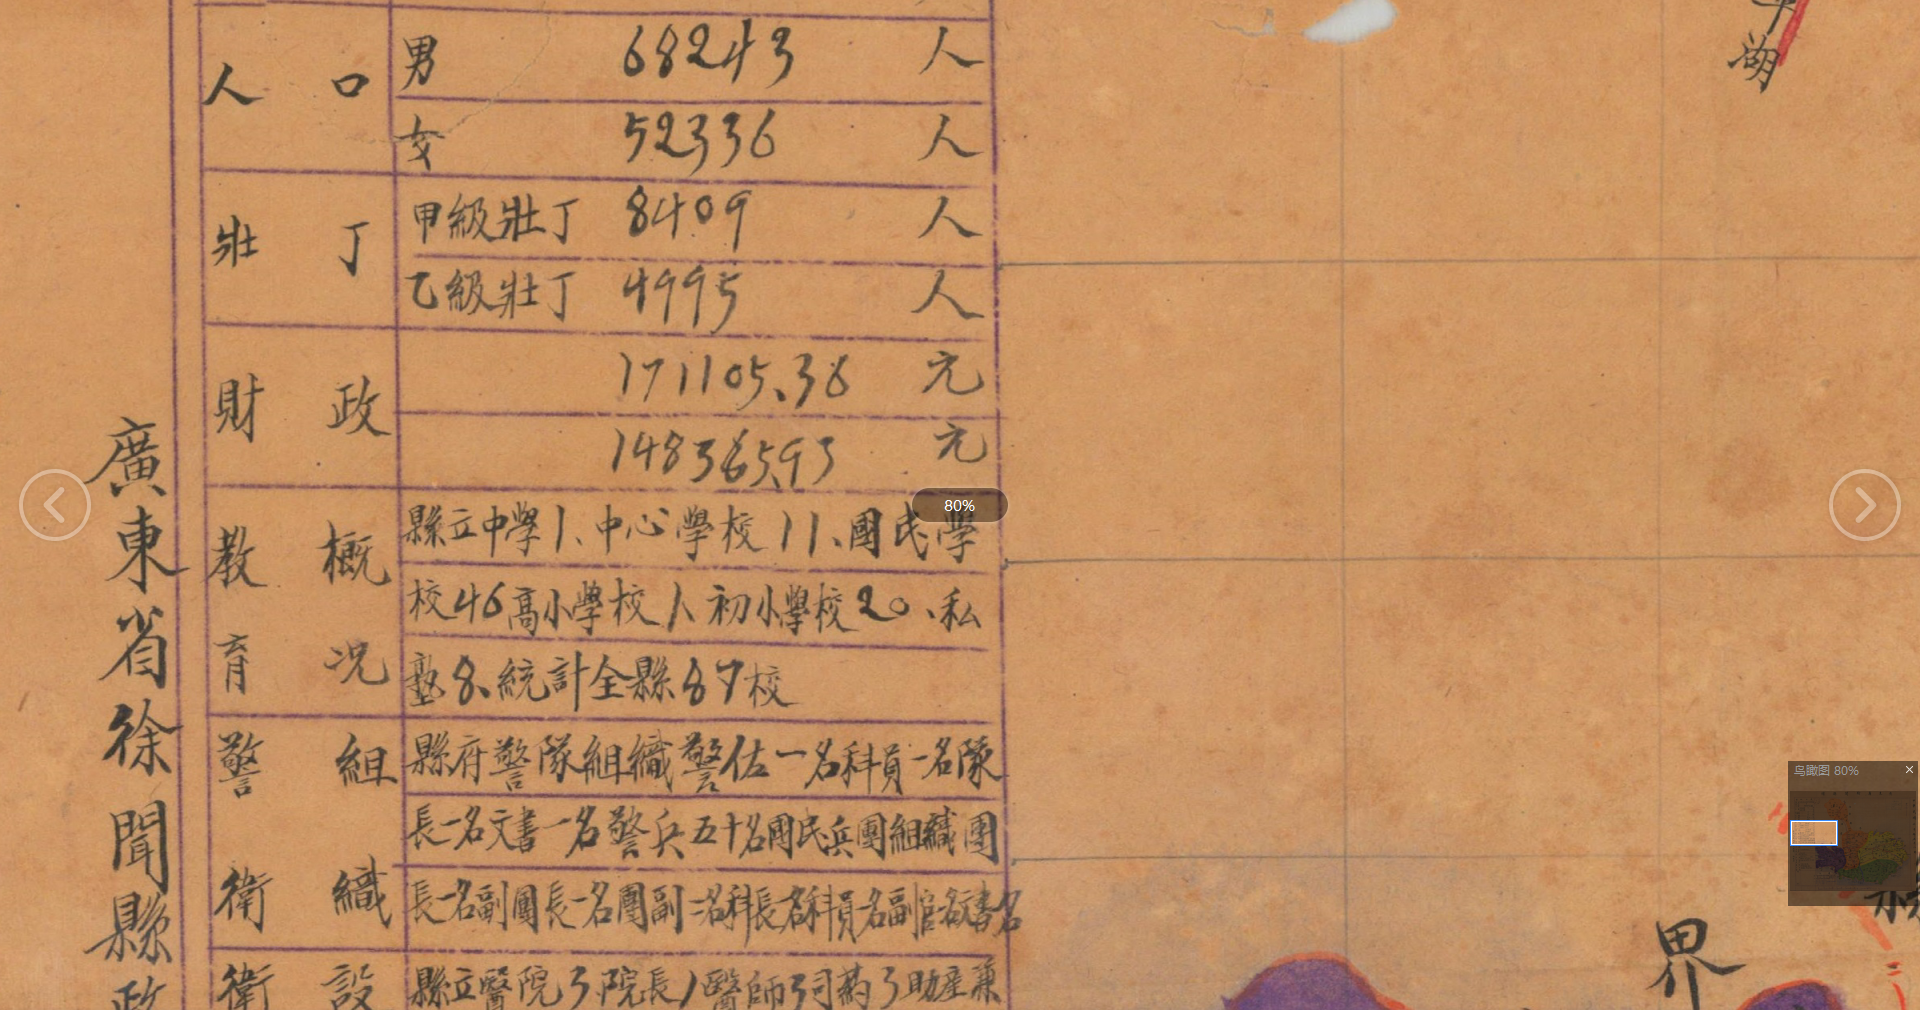 人口
男 68243 人
女 52336 人
壯丁
甲級壯丁 8409 人
乙級壯丁 4995 人
財政
171105.36 元
148365.93 元
教育概況
縣立中學1、中心學校11、國民學
校46高小學校1、初小學校20、私
塾8、統計全縣87校
警衛組織
縣府警隊組織警佐一名科員一名隊
長一名文書一名警兵五十名國民兵團組織團
長一名副團長一名團副二名科長名科員名副官名文書名
衛設
縣立醫院3院長1醫師3司葯3助產兼
廣東省徐聞縣政
湖
界
80%
鸟瞰图 80%